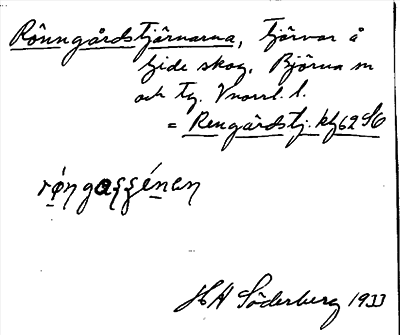 Rönngårdstjärnarna, tjärnar å
Gide skog, Björna sn
och tg. Vnorrl. l.
= Rengårdstj. kbl 62 SO
røngaʂʂénan
HH Söderberg 1933